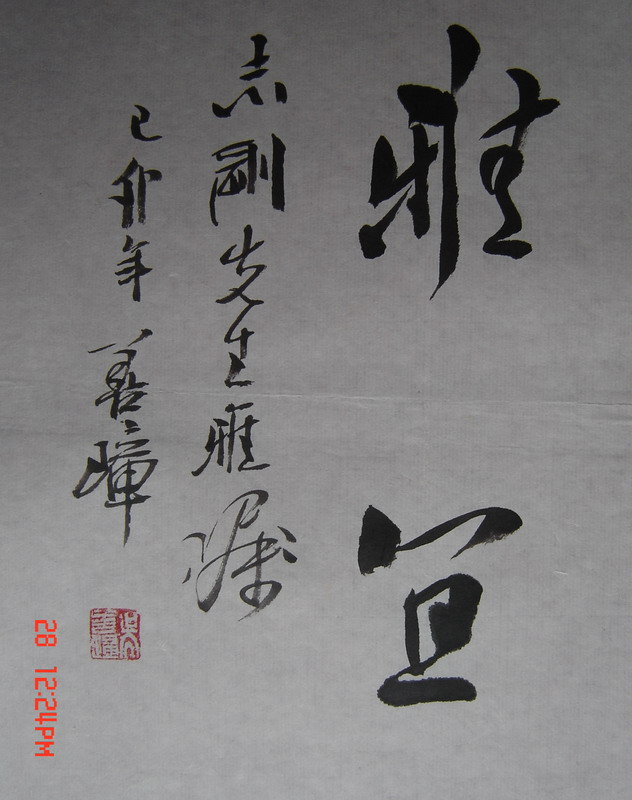 雅宜
志刚先生雅嘱
己卯年 善暐
28 12:24PM